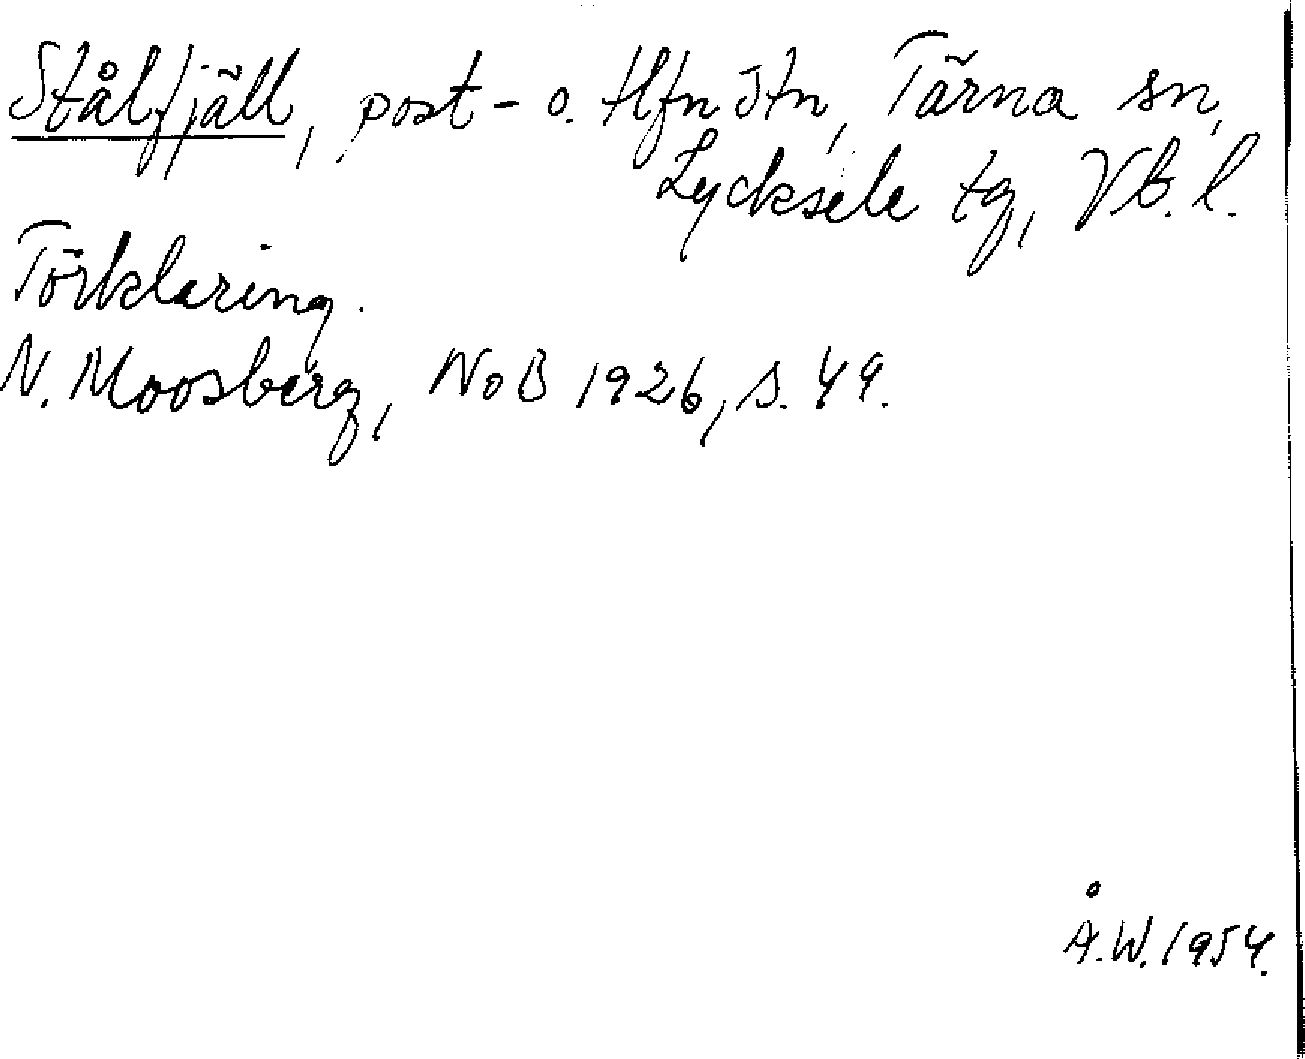 Stålfjäll, post- o. tlfnstn, Tärna sn,
Lycksele tg, Vb. l.
Förklaring.
N. Moosberg, NoB 1926, s. 49.
Å.W. 1954.